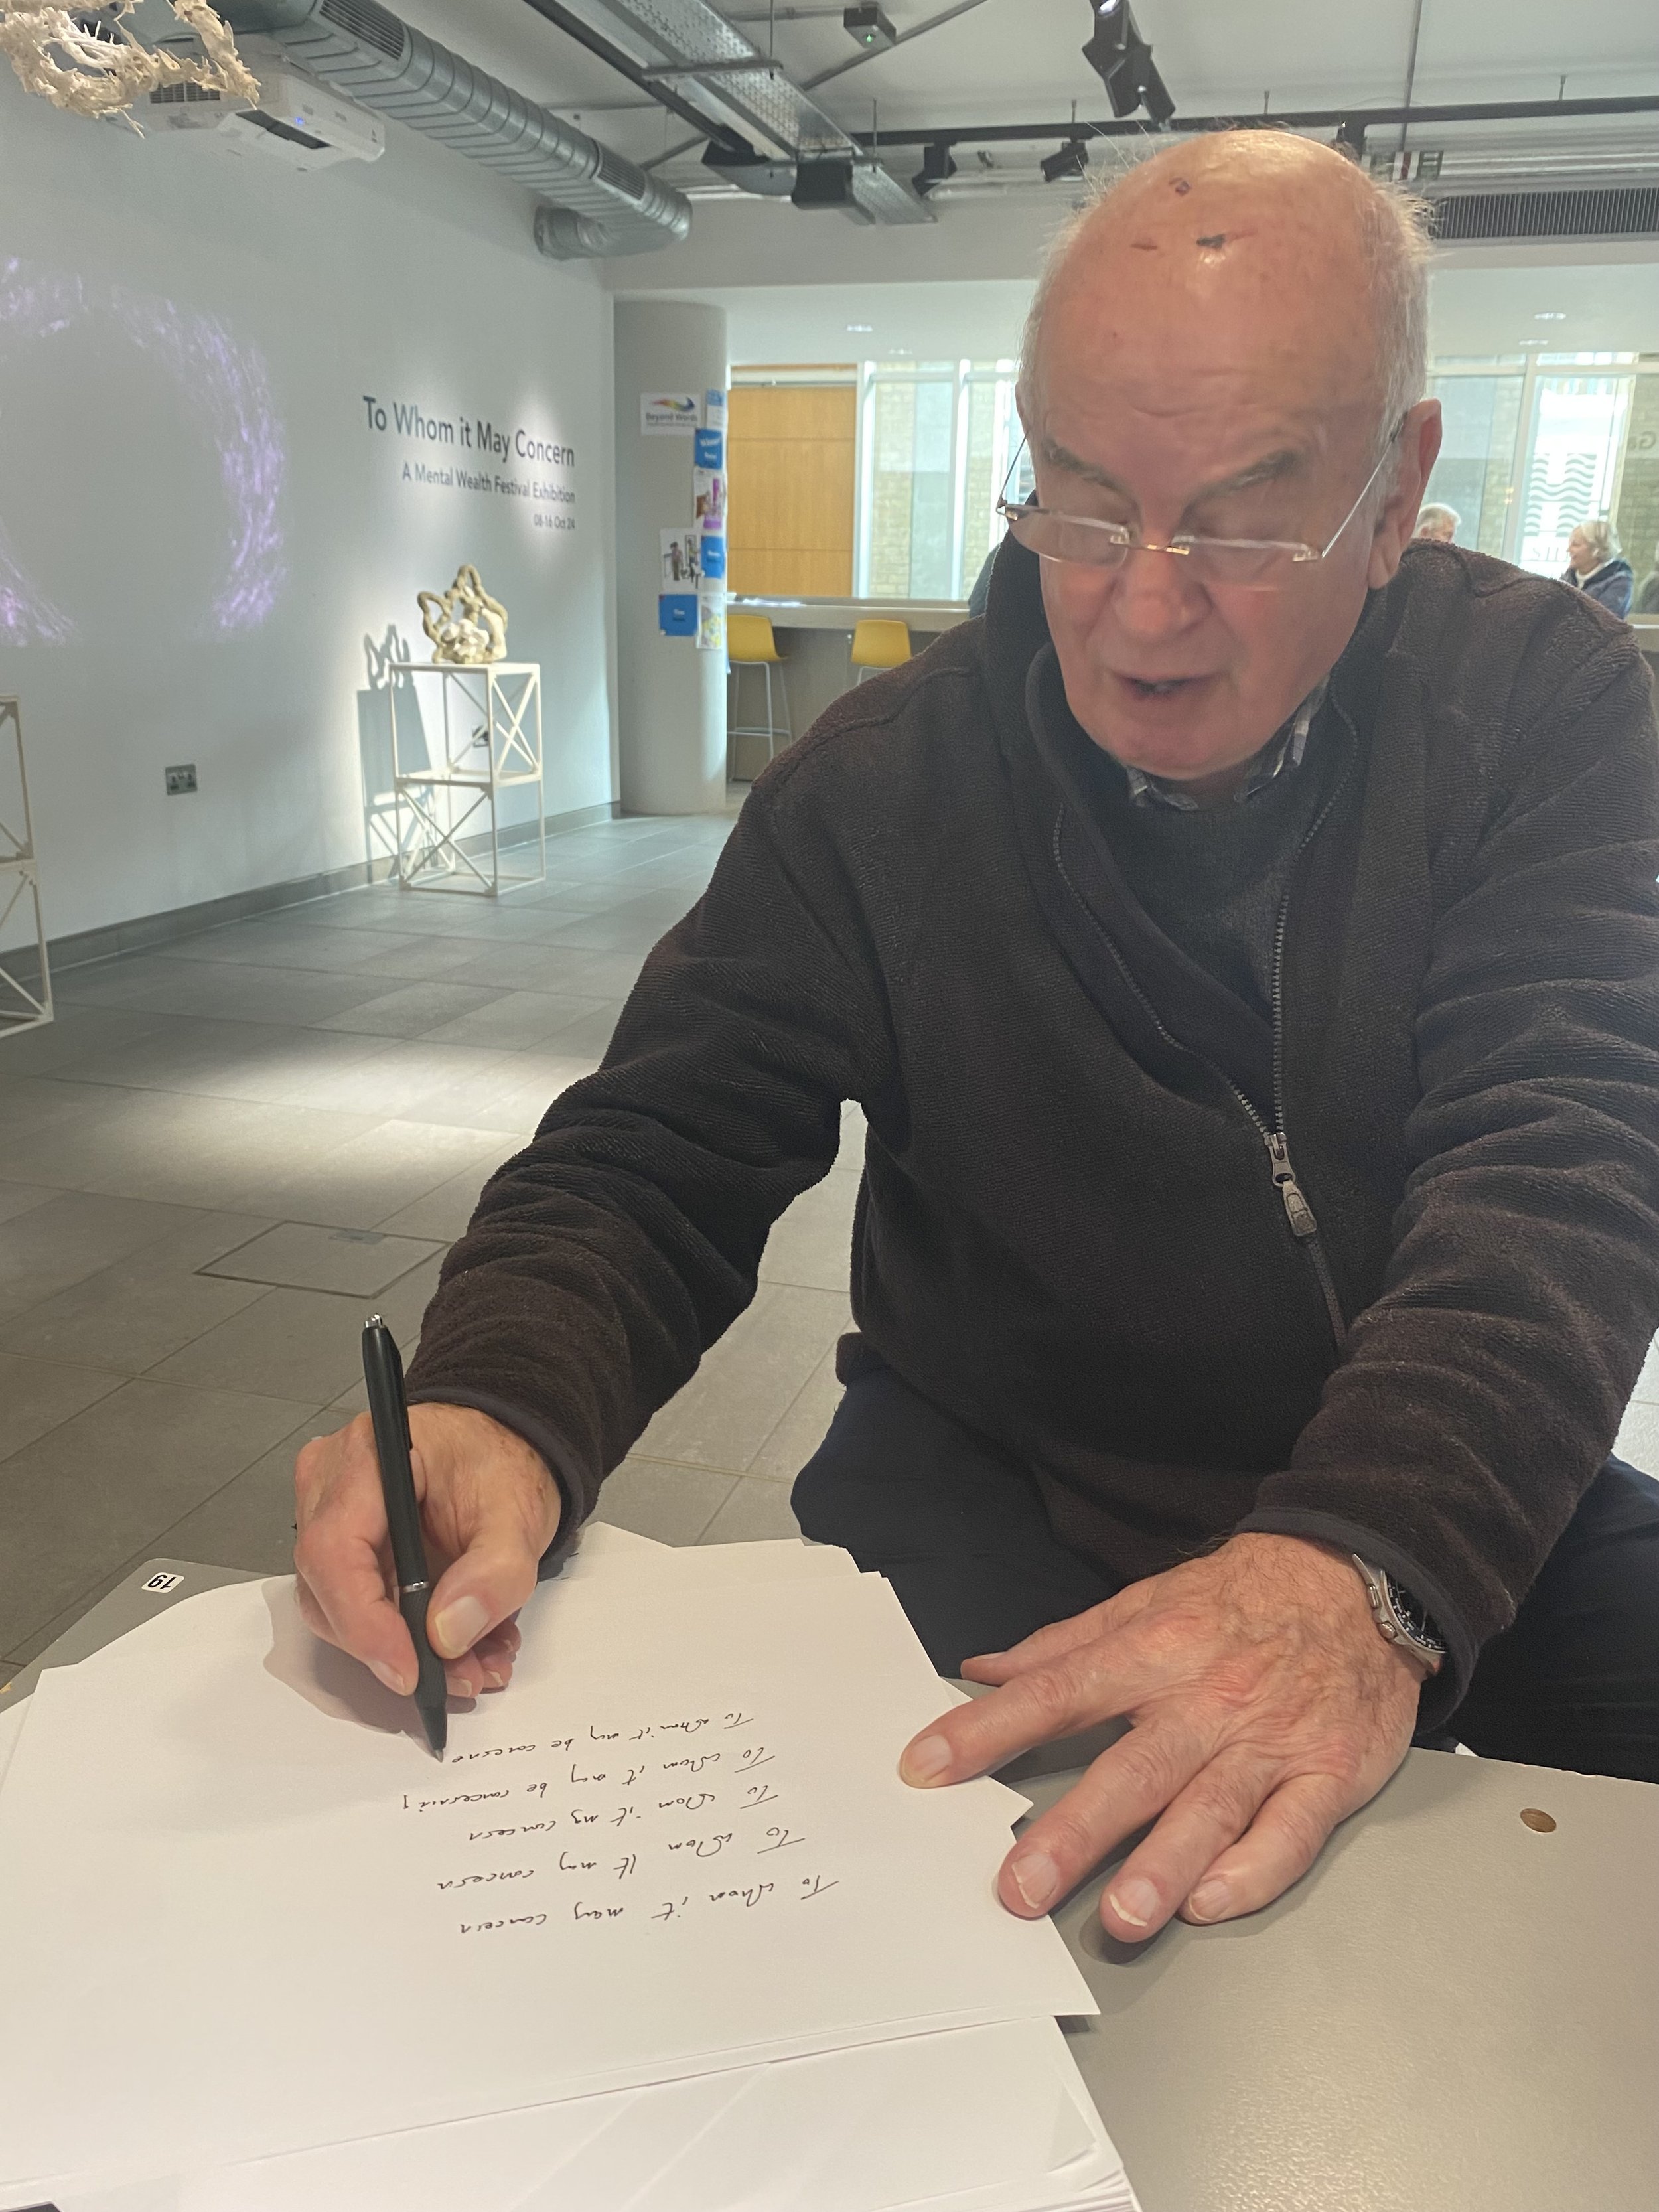 To Whom it May Concern
A Mental Wealth Festival Exhibition
08-16 Oct 24
Beyond Words
19
To whom it may concern
To whom It may concern
To whom it my concern
To whom it may be concerning
To whom it may be concerne